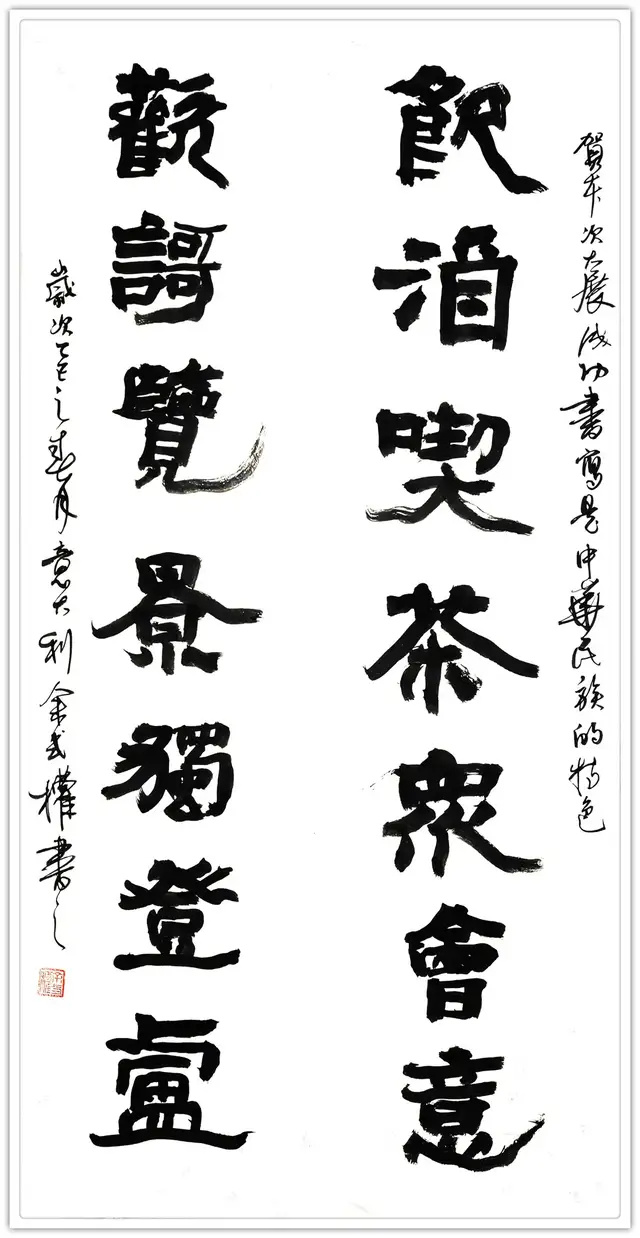 賀本次大展成功書寫是中華民族的特色
飲酒喫茶眾會意
觀謌覽景獨登盧
歲次乙巳之春月意大利余武權書之